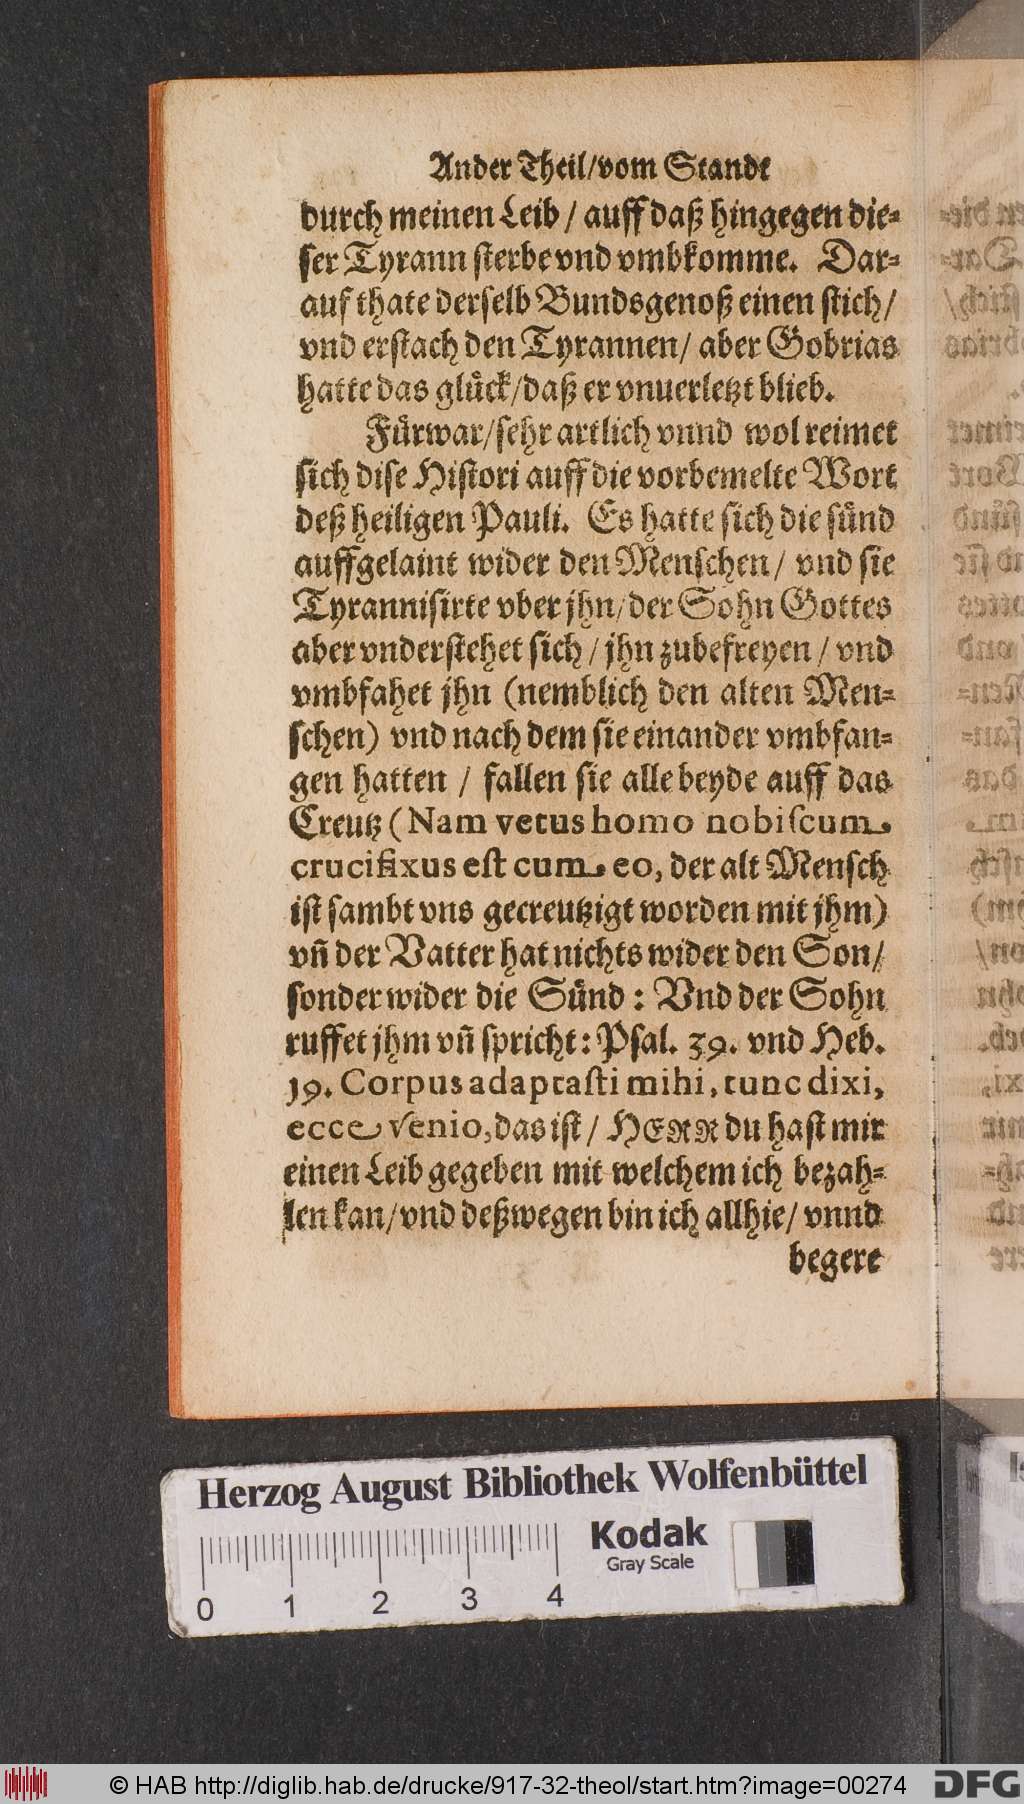 Ander Theil/vom Standt
durch meinen Leib / auff daß hingegen die-
ser Tyrann sterbe vnd vmbkomme. Dar-
auf thate derselb Bundsgenoß einen stich/
vnd erstach den Tyrannen/ aber Gobrias
hatte das glück/daß er vnuerletzt blieb.
Fürwar/sehr artlich vnnd wol reimet
sich dise Histori auff die vorbemelte Wort
deß heiligen Pauli. Es hatte sich die sünd
auffgelaint wider den Menschen/ vnd sie
Tyrannisirte vber jhn/der Sohn Gottes
aber vnderstehet sich / jhn zubefreyen / vnd
vmbfahet jhn (nemblich den alten Men-
schen) vnd nach dem sie einander vmbfan-
gen hatten / fallen sie alle beyde auff das
Creutz (Nam vetus homo nobiscum
crucifixus est cum eo, der alt Mensch
ist sambt vns gecreutzigt worden mit jhm)
vn̄ der Vatter hat nichts wider den Son/
sonder wider die Sünd : Vnd der Sohn
ruffet jhm vn̄ spricht : Psal. 39. vnd Heb.
19. Corpus adaptasti mihi, tunc dixi,
ecce venio, das ist / HERR du hast mir
einen Leib gegeben mit welchem ich bezah-
len kan/vnd deßwegen bin ich allhie/ vnnd
begere
Herzog August Bibliothek Wolfenbüttel
Kodak
Gray Scale
0 1 2 3 4
© HAB http://diglib.hab.de/drucke/917-32-theol/start.htm?image=00274
DFG